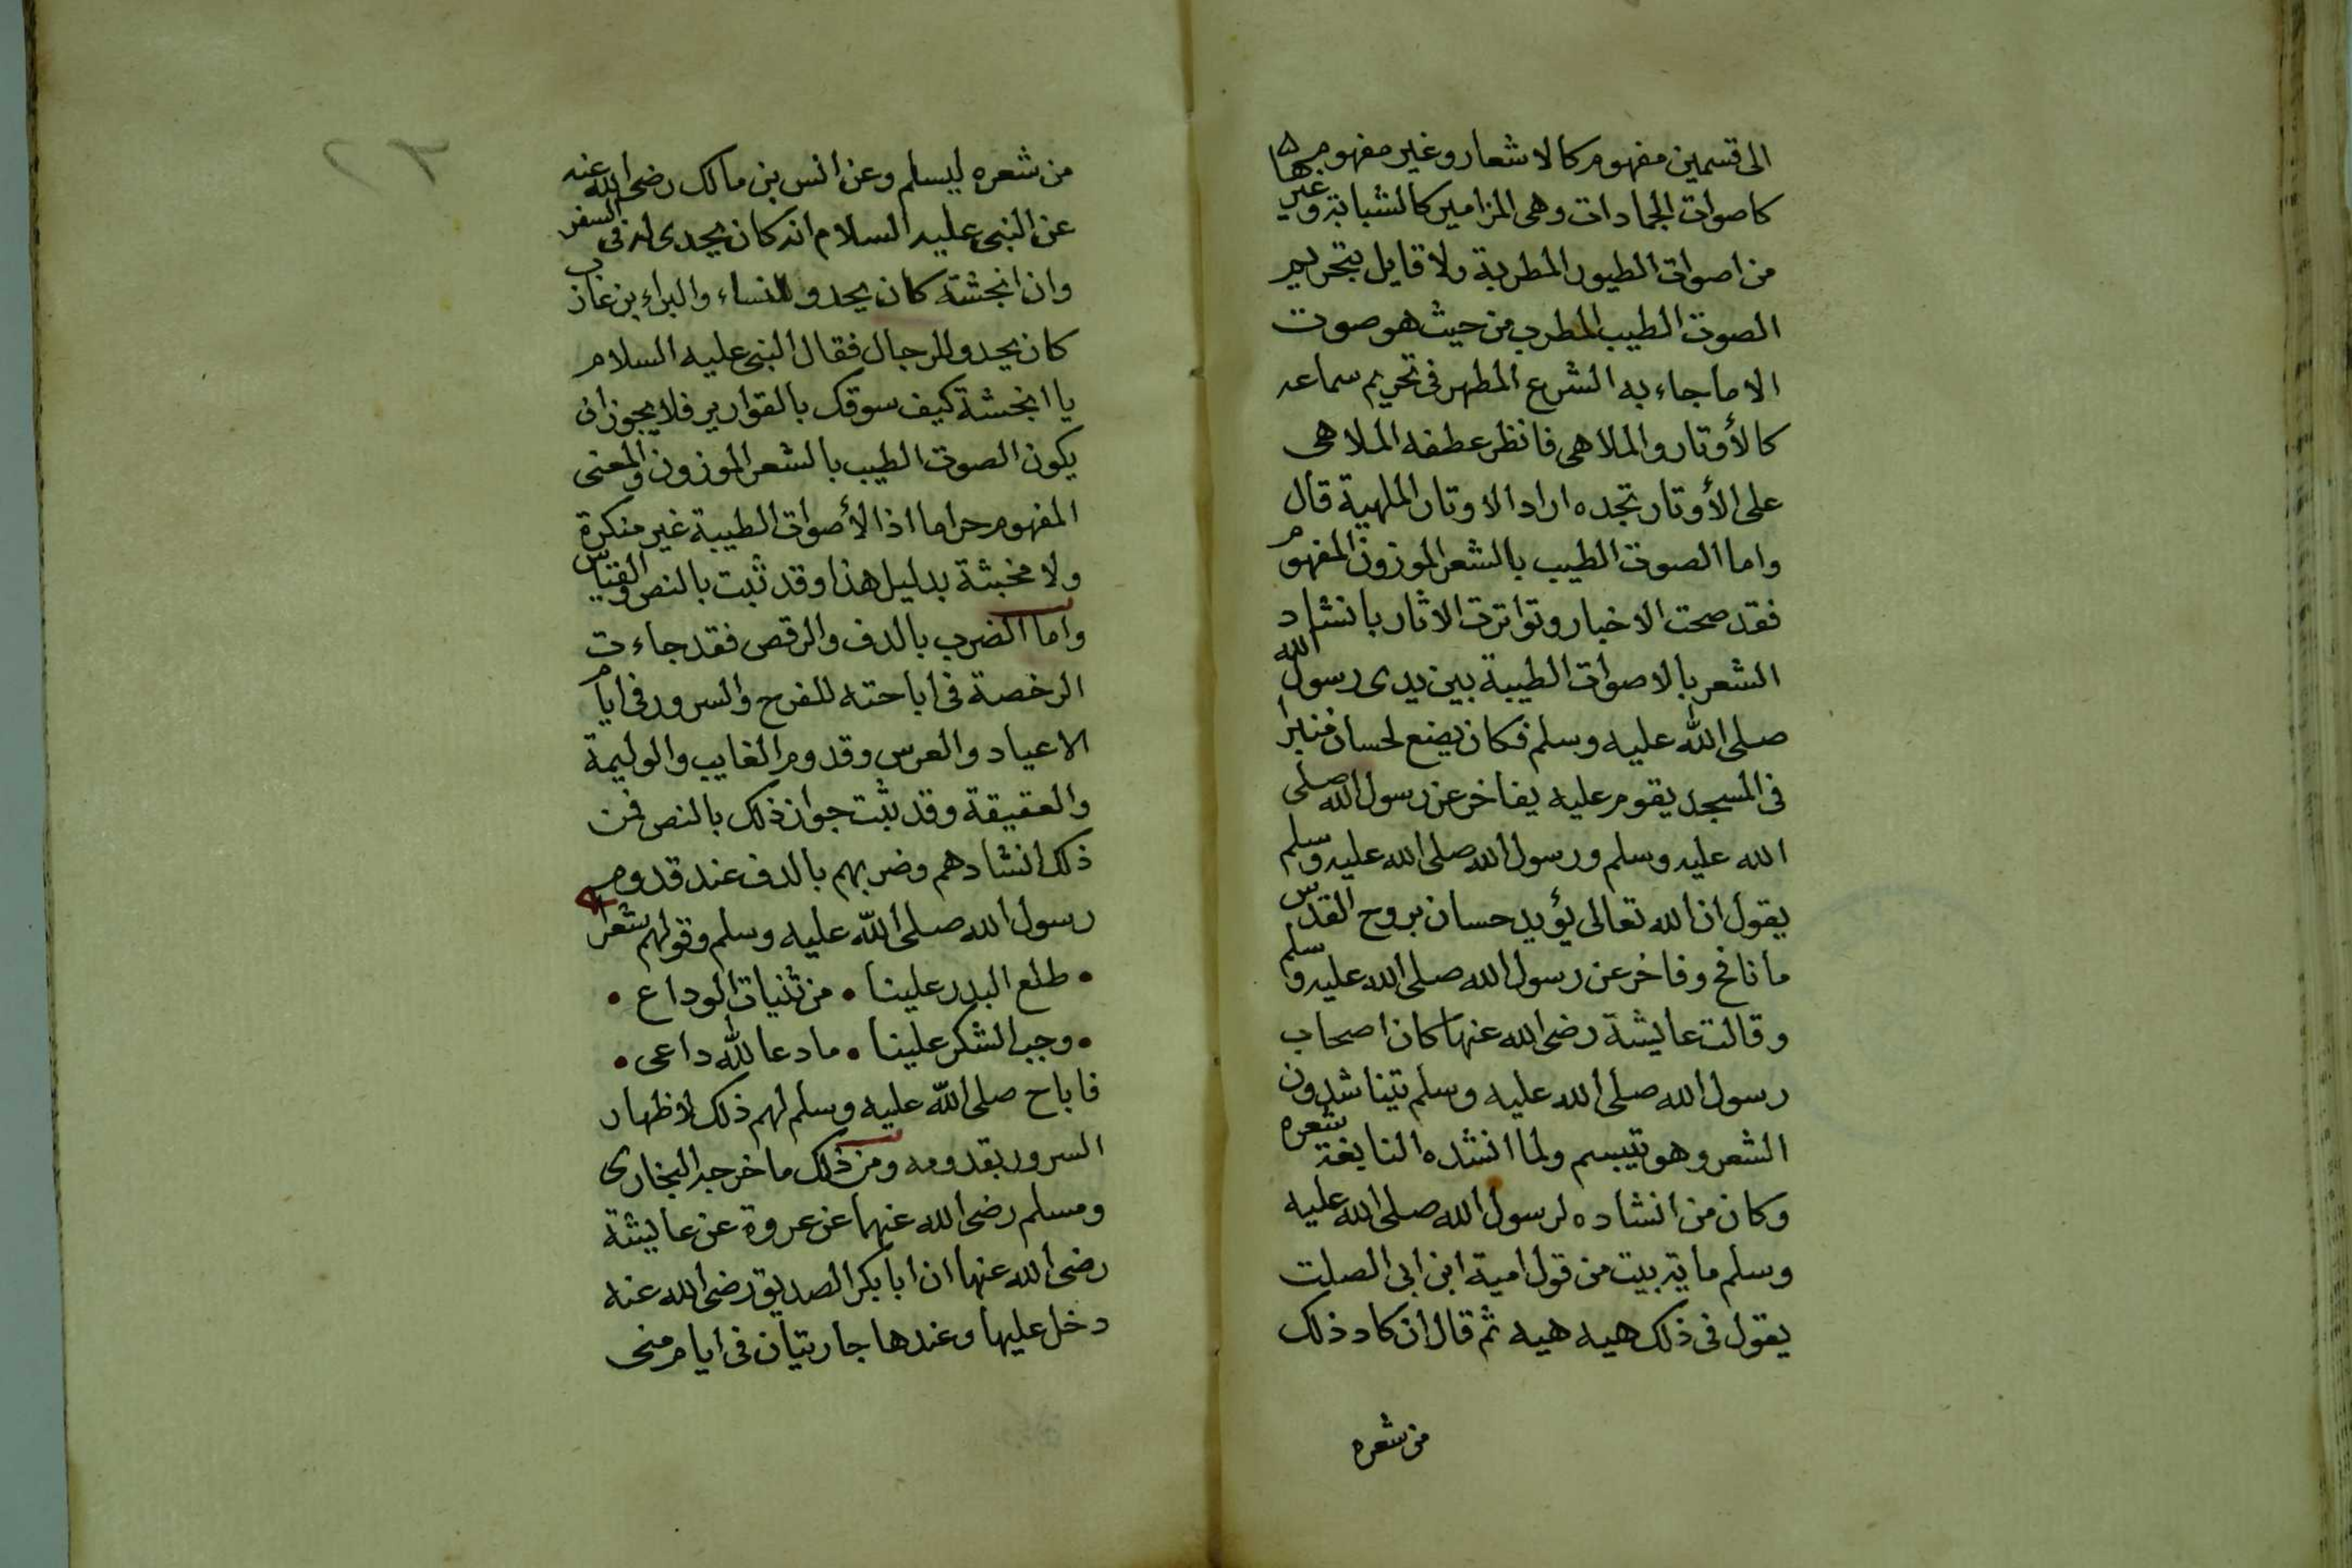 الى قسمين مفهوم كالاشعار وغير مفهوم
كاصوات الجمادات وهى المزامير كالشبابة وغير
من اصوات الطيور المطربة ولا قايل بتحريم
الصوت الطيب المطرب من حيث هو صوت
الا ما جاء به الشرع المطهر فى تحريم سماعه
كالأوتار والملاهى فانظر عطفه الملاهى
على الأوتار تجده اراد الاوتار الملهية قال
واما الصوت الطيب بالشعر الموزون المفهوم
فقد صحت الاخبار وتواترت الاثار بانشاد
الشعر بالاصوات الطيبة بين يدى رسول الله
صلى الله عليه وسلم فكان يضع لحسان منبرا
فى المسجد يقوم عليه يفاخر عن رسول الله صلى
الله عليه وسلم ورسول الله صلى الله عليه وسلم
يقول ان الله تعالى يؤيد حسان بروح القدس
ما نافح وفاخر عن رسول الله صلى الله عليه وسلم
وقالت عايشة رضى الله عنها كان اصحاب
رسول الله صلى الله عليه وسلم يتناشدون
الشعر وهو يتبسم ولما انشده النابغة شعره
وكان من انشاده لرسول الله صلى الله عليه
وسلم ماية بيت من قول امية ابن ابى الصلت
يقول فى ذلك هيه هيه ثم قال ان كاد ذلك
من شعره
من شعره ليسلم وعن انس بن مالك رضى الله عنه
عن النبى عليه السلام انه كان يحدى له فى السفر
وان انجشة كان يحدو للنساء والبراء بن عازب
كان يحدو للرجال فقال النبى عليه السلام
يا انجشة كيف سوقك بالقوارير فلا يجوز ان
يكون الصوت الطيب بالشعر الموزون والمعنى
المفهوم حراما اذ الأصوات الطيبة غير منكرة
ولا مخبثة بدليل هذا وقد ثبت بالنص والقياس
واما الضرب بالدف والرقص فقد جاءت
الرخصة فى اباحته للفرح والسرور فى ايام
الاعياد والعرس وقدوم الغايب والوليمة
والعقيقة وقد ثبت جواز ذلك بالنص فمن
ذلك انشادهم وضربهم بالدف عند قدوم
رسول الله صلى الله عليه وسلم وقولهم شعرا
• طلع البدر علينا • من ثنيات الوداع •
• وجب الشكر علينا • ما دعا لله داعى •
فاباح صلى الله عليه وسلم لهم ذلك لاظهار
السرور بقدومه ومن ذلك ما خرجه البخارى
ومسلم رضى الله عنهما عن عروة عن عايشة
رضى الله عنها ان ابا بكر الصديق رضى الله عنه
دخل عليها وعندها جاريتان فى ايام منى